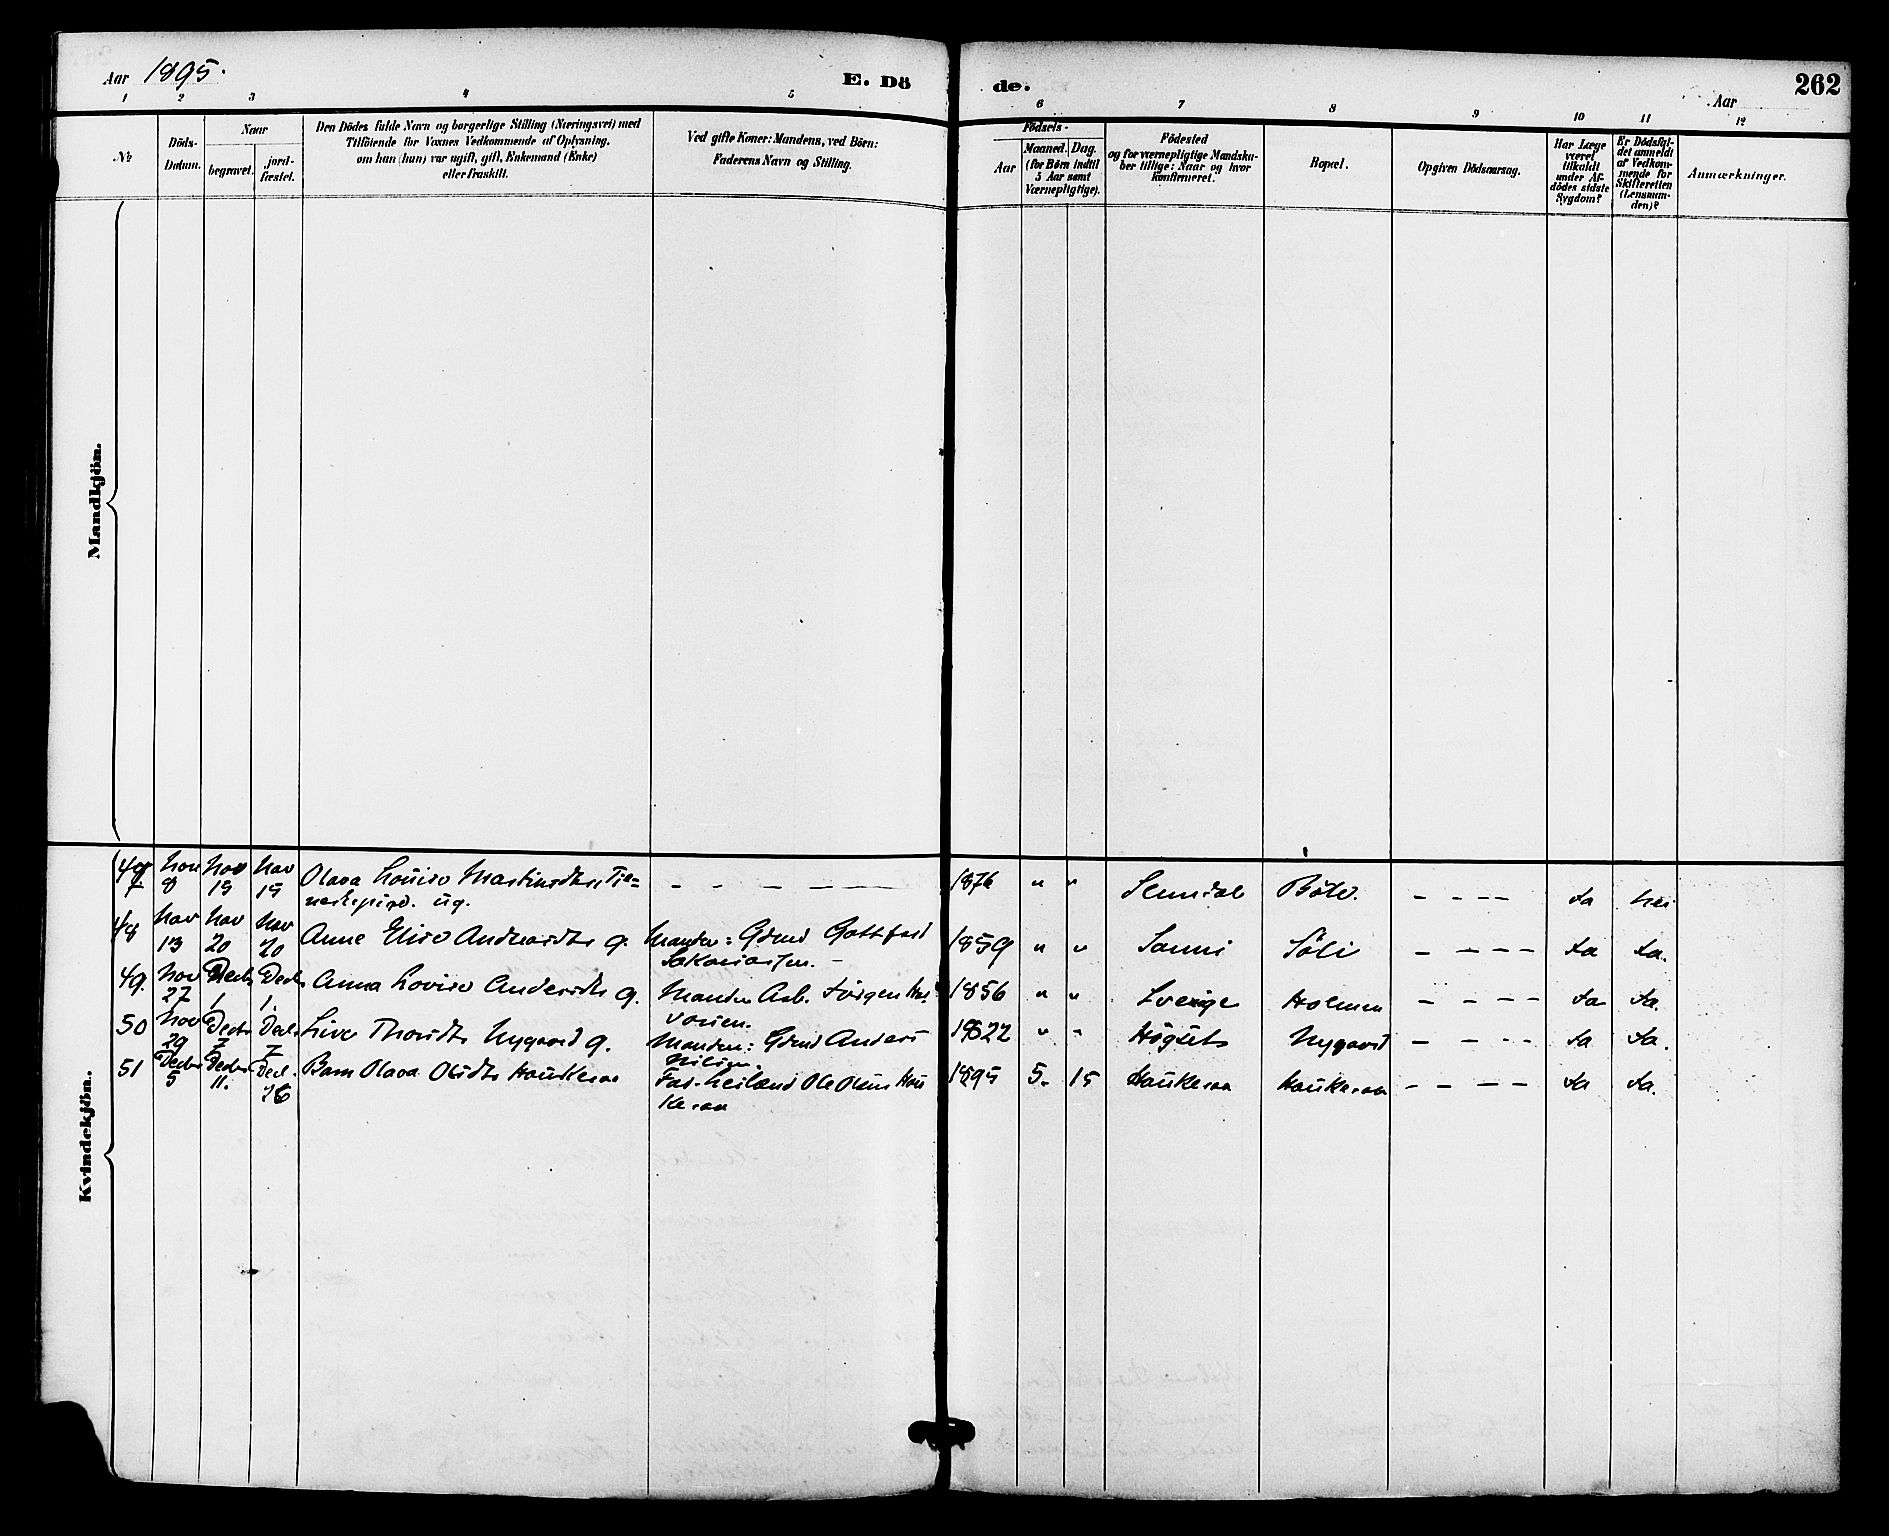 Aar 1895.
E. Dö
de.
262
Aar
1 2 3 4 5
6 7 8 9 10 11 12
No
Döds-Datum.
Naar
begravet.
jord-fæstet.
Den Dödes fulde Navn og borgerlige Stilling (Næringsvei) med
Tilföiende for Voxnes Vedkommende af Oplysning,
om han (hun) var ugift, gift, Enkemand (Enke)
eller fraskilt.
Ved gifte Koner: Mandens, ved Börn:
Faderens Navn og Stilling.
Födsels-
Aar
Maaned. Dag.
(for Börn indtil
5 Aar samt
Værnepligtige).
Födested
og for værnepligtige Mandska-
ber tillige: Naar og hvor
konfirmeret.
Bopæl.
Opgiven Dödsaarsag.
Har Læge
været
tilkaldt
under Af-
dödes sidste
Sygdom?
Er Dödsfal-
det anmeldt
af Vedkom-
mende for
Skifteretten
(Lensman-
den)?
Anmærkninger.
Mandkjön.
Kvindekjön.
47 Nov 8 Nov 19 Nov 19 Olava Louise Martinsdtr, Tje=
nestepige. ug. – – – – – 1876 " " Bötö. – – – – Ja Nei
48 Nov 13 Nov 20 Nov 20 Anne Elise Andreasdtr g. Manden: Grmd Gottfred
Sakariassen. – 1859 " " Sanni Söli – – – – Ja Ja.
49. Nov 27 Decbr 1 Decbr 1. Anna Lovise Andersdtr g. Manden Arb. Jörgen
1856 " " Sverige Holmen – – – – Ja Ja.
50 Nov 29 Decbr 7 Decb. 7 Live Thorsdtr Nygaard g. Manden: Grmd Anders
Nilsen. 1822 " " Högsets Nygaard – – – – Ja Ja.
51 Decbr 5 Decbr 11. Decb. 26 Barn Olava Olsdtr Haukeraa Fad. Leilænd Ole Olsen Hau
keraa 1895 5. 15 Haukeraa Haukeraa – – – – Ja Ja.